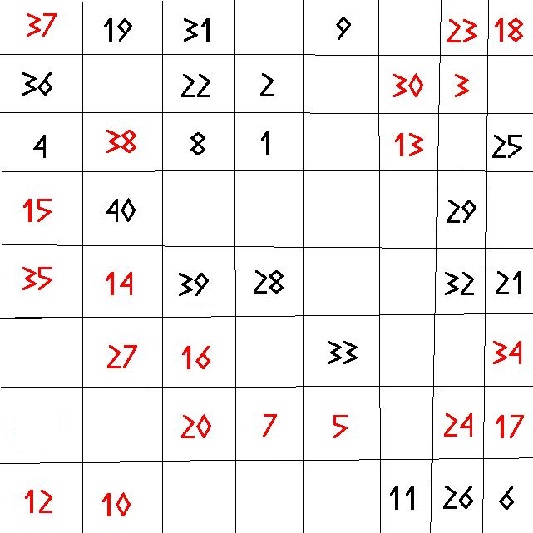 37 19 31 9 23 18
36 22 2 30 3
4 38 8 1 13 25
15 40 29
35 14 39 28 32 21
27 16 33 34
20 7 5 24 17
12 10 11 26 6